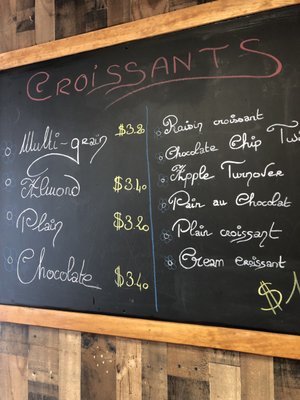 CROISSANTS
Multi-grain $3.20
Almond $3.40
Plain $3.20
Chocolate $3.40
Raisin croissant
Chocolate Chip
Apple Turnover
Pain au Chocolat
Plain croissant
Cream croissant
$